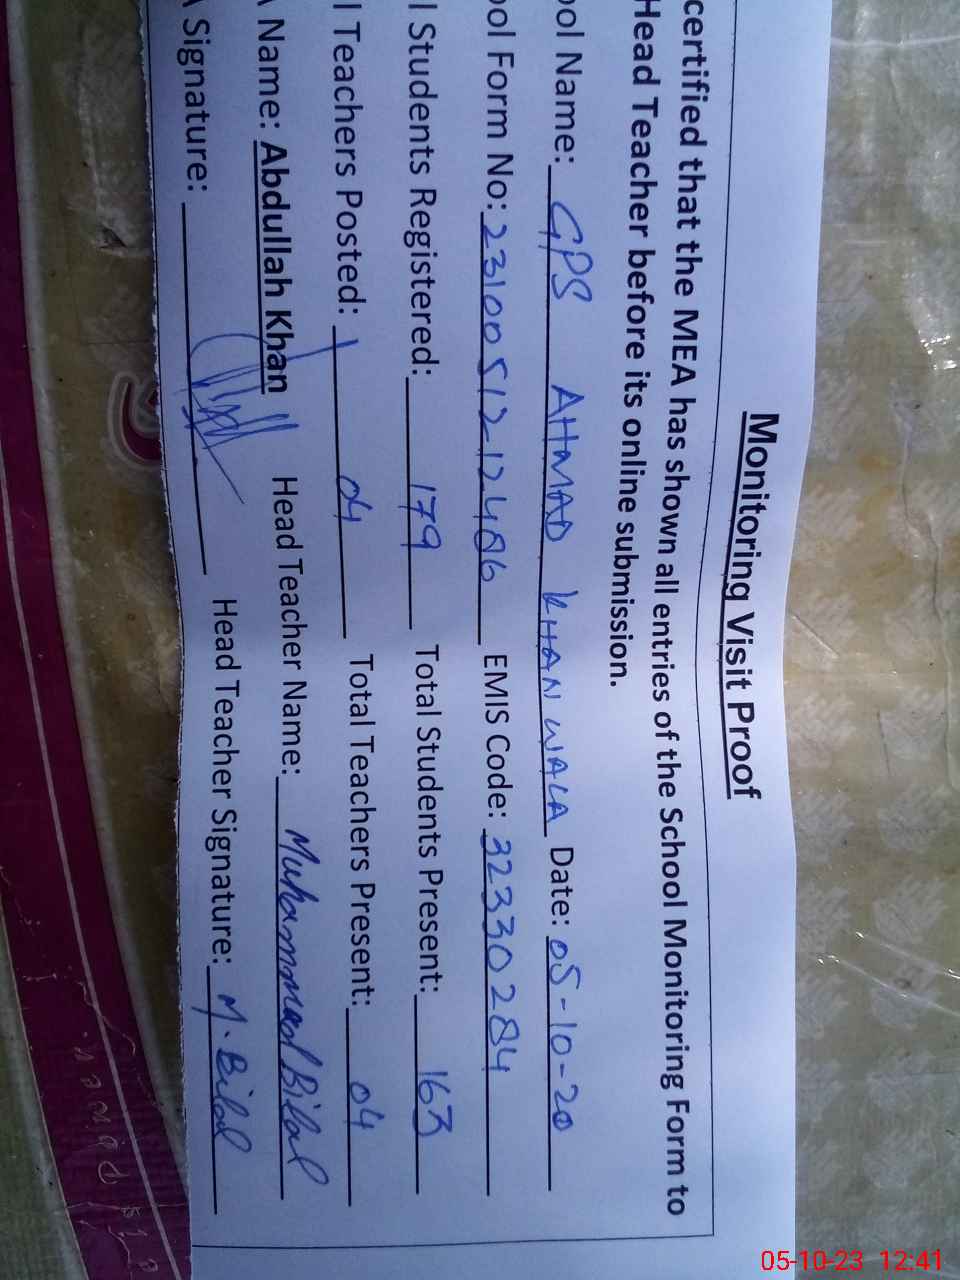 Monitoring Visit Proof
certified that the MEA has shown all entries of the School Monitoring Form to
Head Teacher before its online submission.
ool Name: GPS AHMAD KHAN WALA Date: 05-10-20
ool Form No: 2310051212486 EMIS Code: 32330284
l Students Registered: 179 Total Students Present: 163
l Teachers Posted: 04 Total Teachers Present: 04
A Name: Abdullah Khan Head Teacher Name: Muhammad Bilal
A Signature: Head Teacher Signature: M. Bilal
05-10-23 12:41